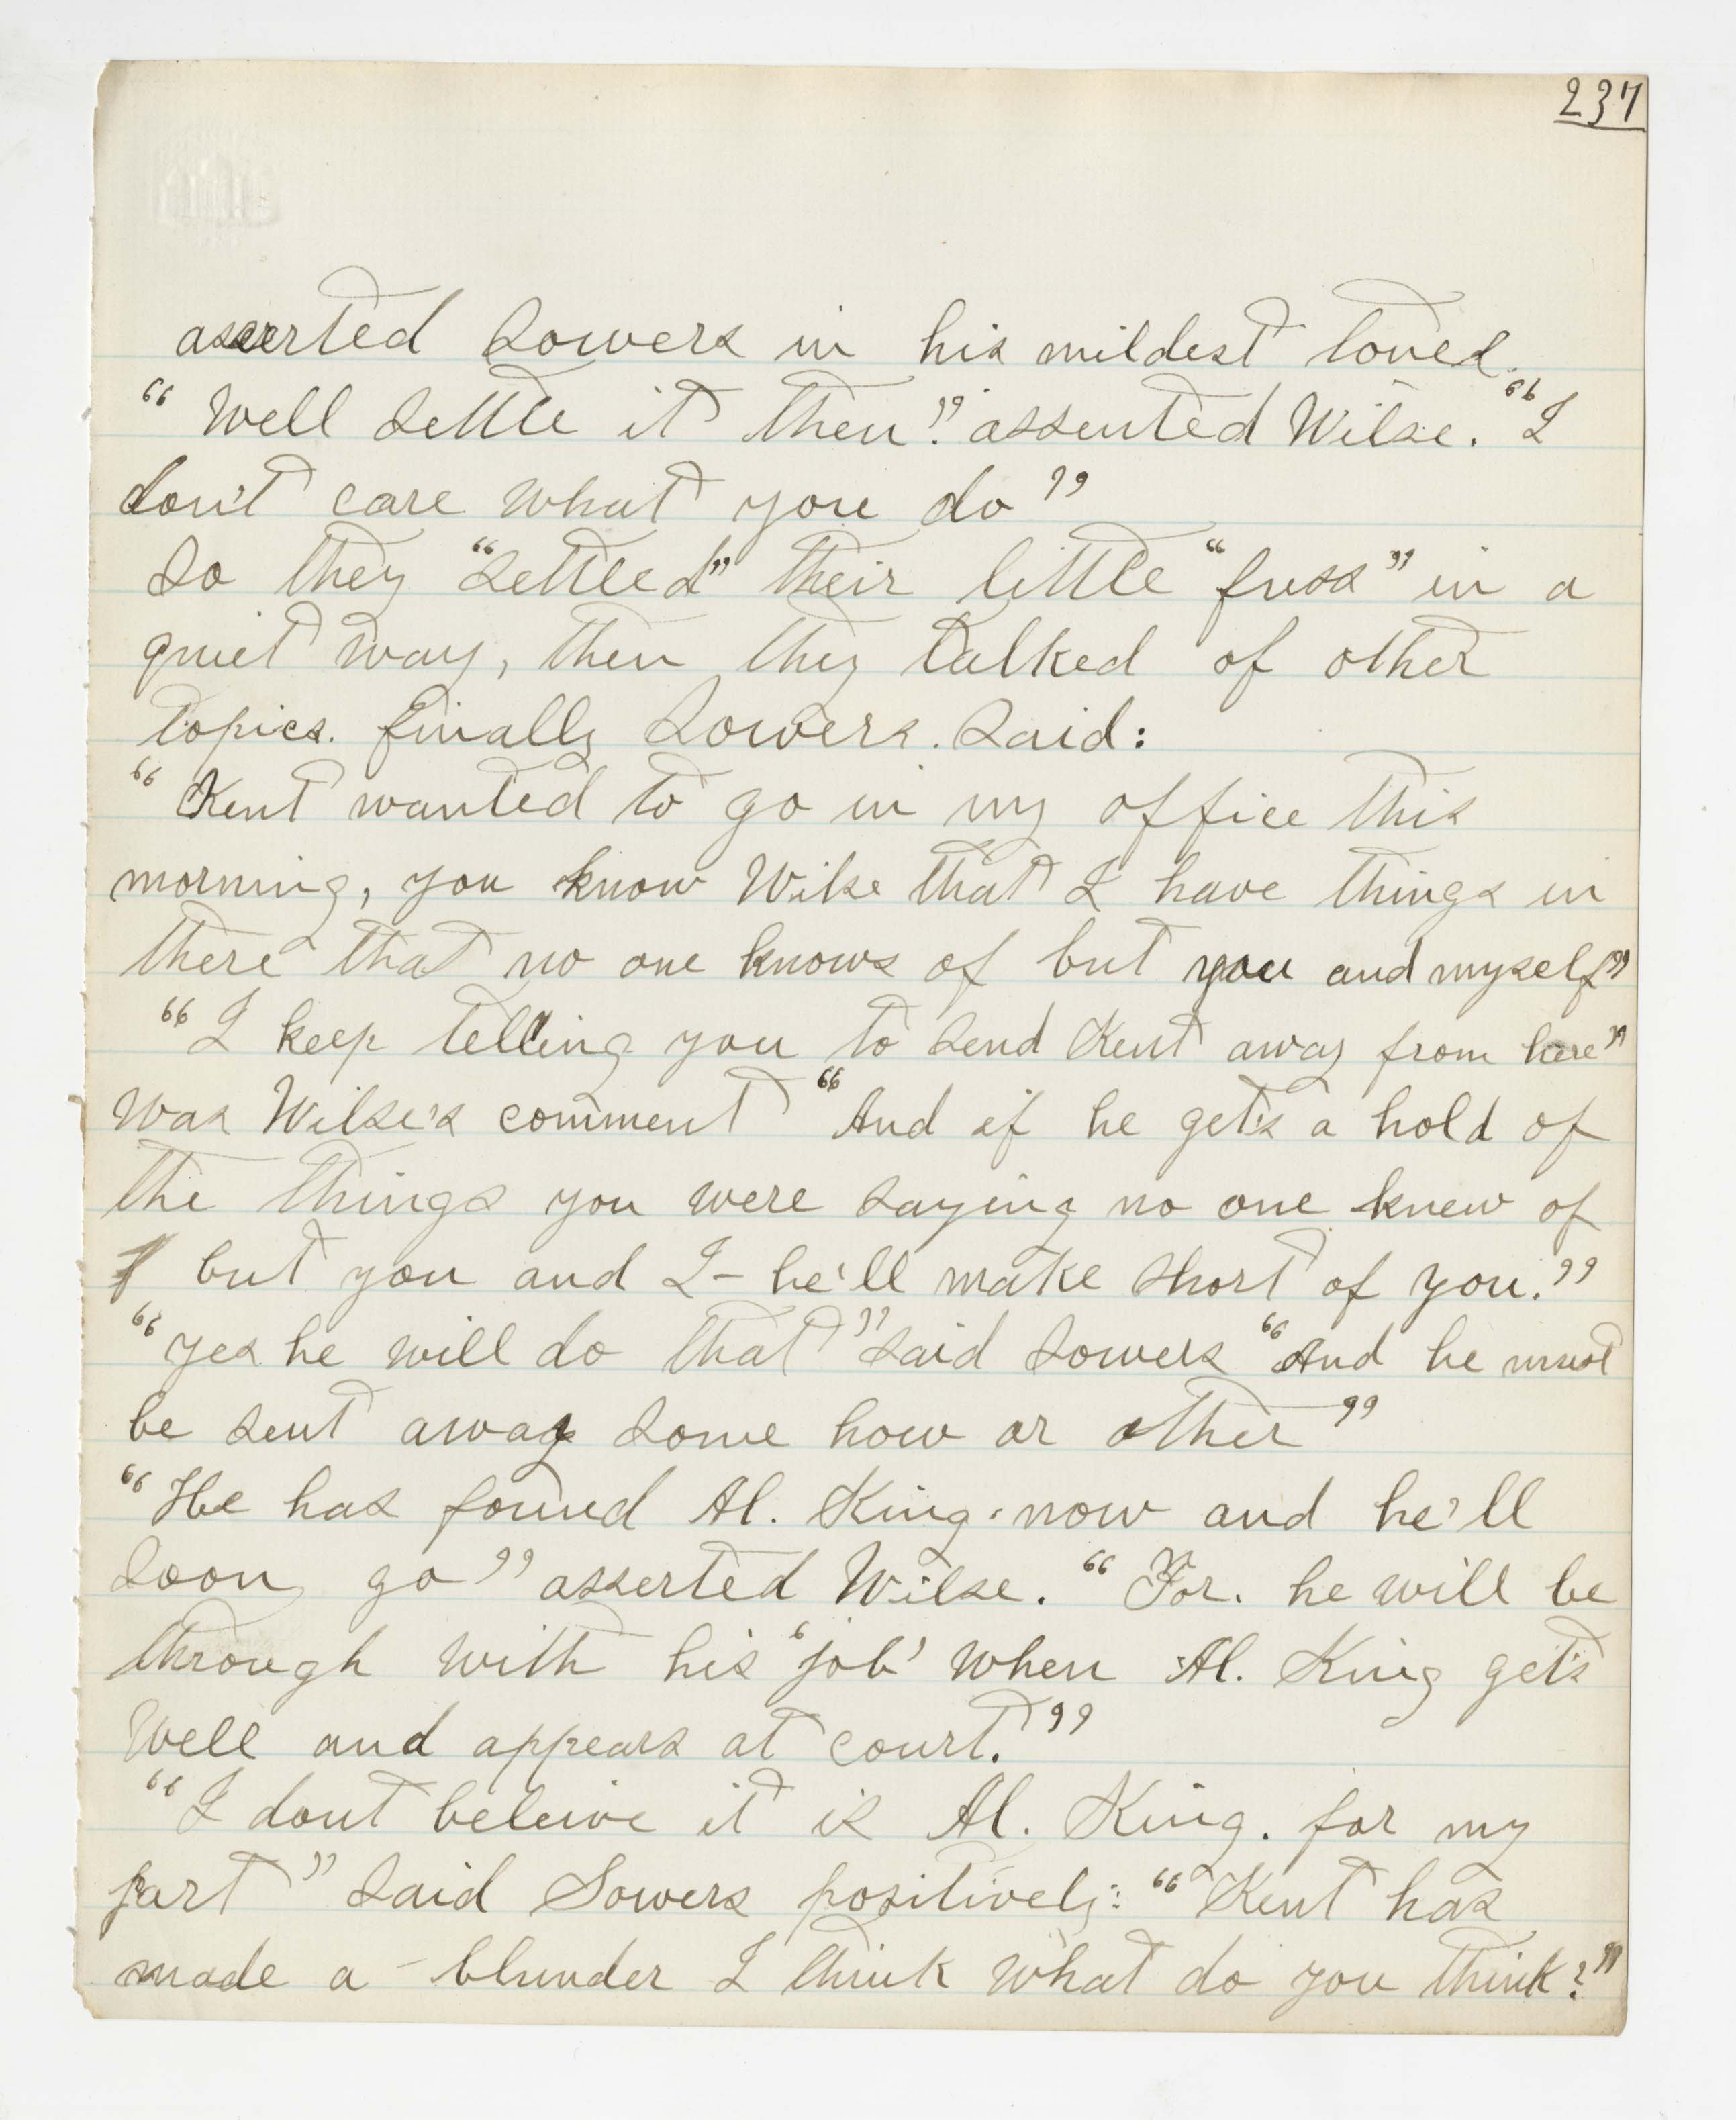 237
asserted Sowers in his mildest tones.
"Well settle it then". assented Wilse. "I
don't care what you do"
So they "settled" their little "fuss" in a
quiet way, then they talked of other
topics. finally Sowers. Said:
"Kent wanted to go in my office this
morning, you know Wilse that I have things in
there that no one knows of but you and myself"
"I keep telling you to send Kent away from here"
was Wilse's comment "And if he get's a hold of
the things you were saying no one knew of
but you and I - he'll make short of you."
"Yes he will do that" said Sowers "And he must
be sent away some how or other"
"He has found Al. King now and he'll
soon go" asserted Wilse. "For. he will be
through with his 'job' when Al. King get's
well and appears at court."
"I dont beleive it is Al. King. for my
part" said Sowers positively: "Kent has
made a - blunder I think what do you think?"